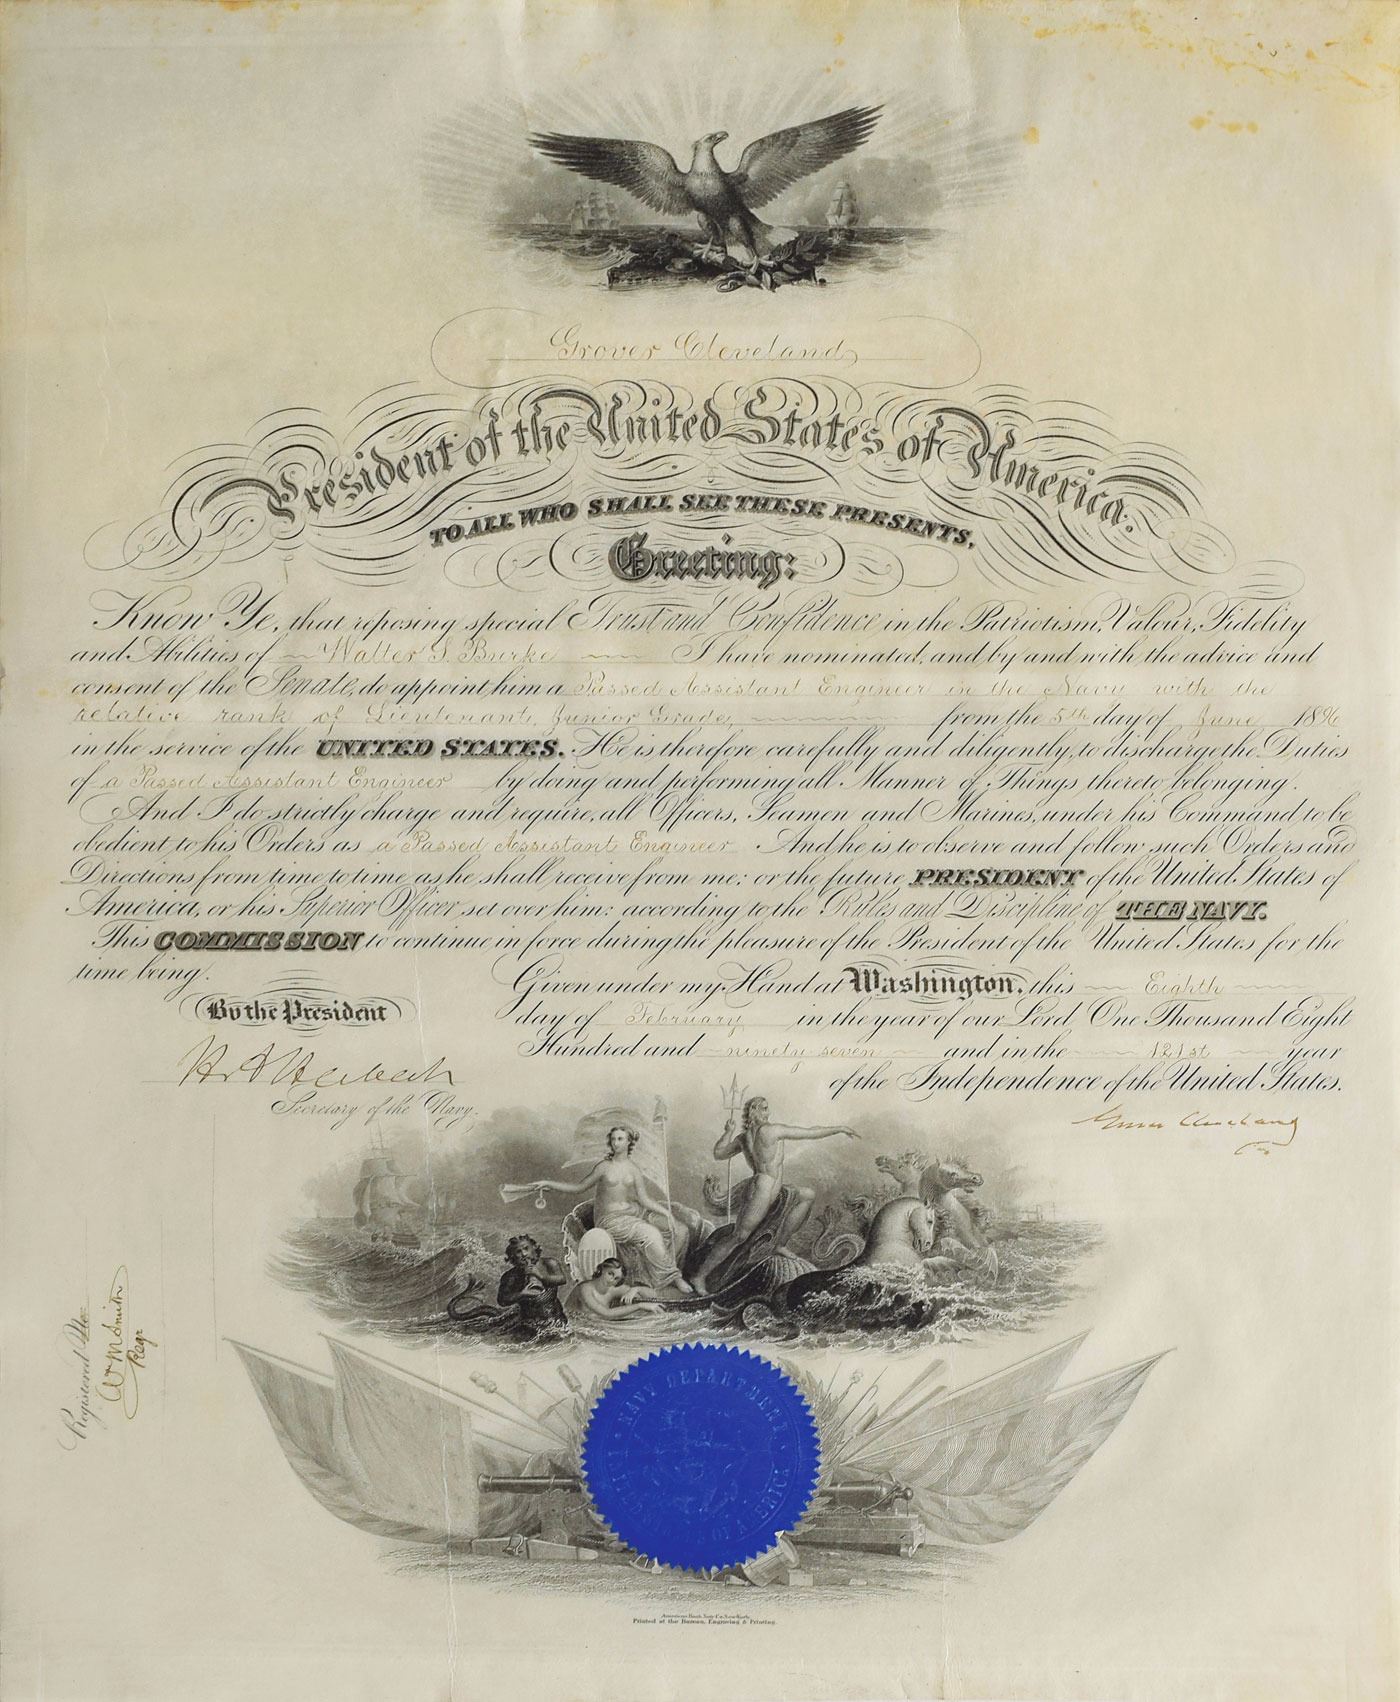 Grover Cleveland,
President of the United States of America.
TO ALL WHO SHALL SEE THESE PRESENTS,
Greeting:
Know Ye, that reposing special Trust and Confidence in the Patriotism, Valour, Fidelity
and Abilities of Walter S. Burke I have nominated, and by and with the advice and
consent of the Senate, do appoint him a Passed Assistant Engineer in the Navy with the
relative rank of Lieutenant, Junior Grade, from the 5th day of June 1896
in the service of the UNITED STATES. He is therefore carefully and diligently, to discharge the Duties
of a Passed Assistant Engineer by doing and performing all Manner of Things thereto belonging.
And I do strictly charge and require, all Officers, Seamen and Marines, under his Command to be
obedient to his Orders as a Passed Assistant Engineer And he is to observe and follow such Orders and
Directions from time to time as he shall receive from me: or the future PRESIDENT of the United States of
America, or his Superior Officer set over him: according to the Rules and Discipline of THE NAVY.
This COMMISSION to continue in force during the pleasure of the President of the United States for the
time being.
Given under my Hand at Washington, this Eighth
day of February, in the year of our Lord One Thousand Eight
Hundred and ninety seven and in the 121st year
of the Independence of the United States.
By the President
H A Herbert
Secretary of the Navy.
Grover Cleveland
Registered No
Wm Smith
Regr
NAVY DEPARTMENT
UNITED STATES OF AMERICA
American Bank Note Co. New York.
Printed at the Bureau, Engraving & Printing.